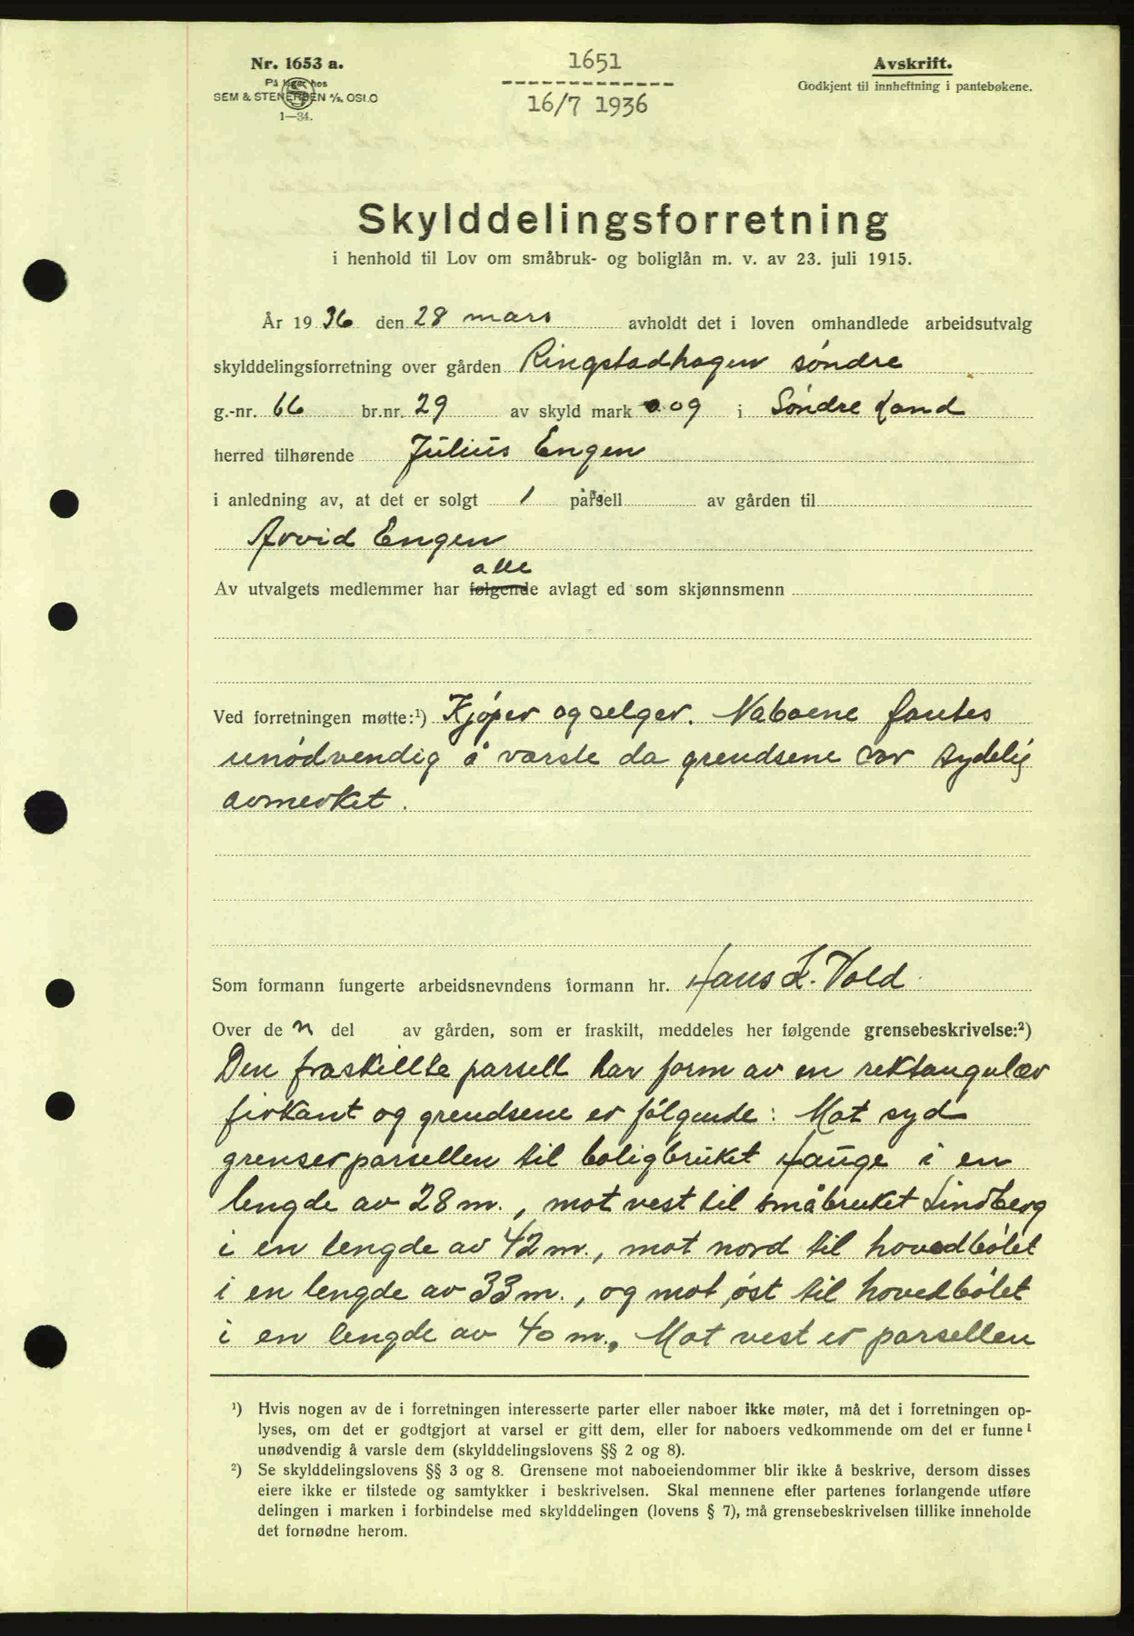 Nr. 1653 a.
På lager hos
SEM & STENERSEN A/S, OSLO
1—34.
1651
16/7 1936
Avskrift.
Godkjent til innheftning i pantebøkene.
Skylddelingsforretning
i henhold til Lov om småbruk- og boliglån m. v. av 23. juli 1915.
År 1936 den 28 mars avholdt det i loven omhandlede arbeidsutvalg
skylddelingsforretning over gården Ringstadhagen søndre
g.-nr. 66 br.nr. 29 av skyld mark 0.09 i Søndre Land
herred tilhørende Julius Engen
i anledning av, at det er solgt 1 parsell av gården til
Arvid Engen
alle
Av utvalgets medlemmer har følgende avlagt ed som skjønnsmenn
Ved forretningen møtte:¹) Kjøper og selger. Naboene fantes
unødvendig å varsle da grendsene var tydelig
avmerket.
Som formann fungerte arbeidsnevndens formann hr. Hans L. Vold
Over den del av gården, som er fraskilt, meddeles her følgende grensebeskrivelse:²)
Den fraskillte parsell har form av en rektangulær
firkant og grendsene er følgende: Mot syd
grenser parsellen til boligbruket Hauge i en
lengde av 28 m., mot vest til småbruket Lindberg
i en lengde av 42 m., mot nord til hovedbølet
i en lengde av 33 m., og mot øst til hovedbølet
i en lengde av 40 m., Mot vest er parsellen
¹) Hvis nogen av de i forretningen interesserte parter eller naboer ikke møter, må det i forretningen op-
lyses, om det er godtgjort at varsel er gitt dem, eller for naboers vedkommende om det er funnet
unødvendig å varsle dem (skylddelingslovens §§ 2 og 8).
²) Se skylddelingslovens §§ 3 og 8. Grensene mot naboeiendommer blir ikke å beskrive, dersom disses
eiere ikke er tilstede og samtykker i beskrivelsen. Skal mennene efter partenes forlangende utføre
delingen i marken i forbindelse med skylddelingen (lovens § 7), må grensebeskrivelsen tillike inneholde
det fornødne herom.